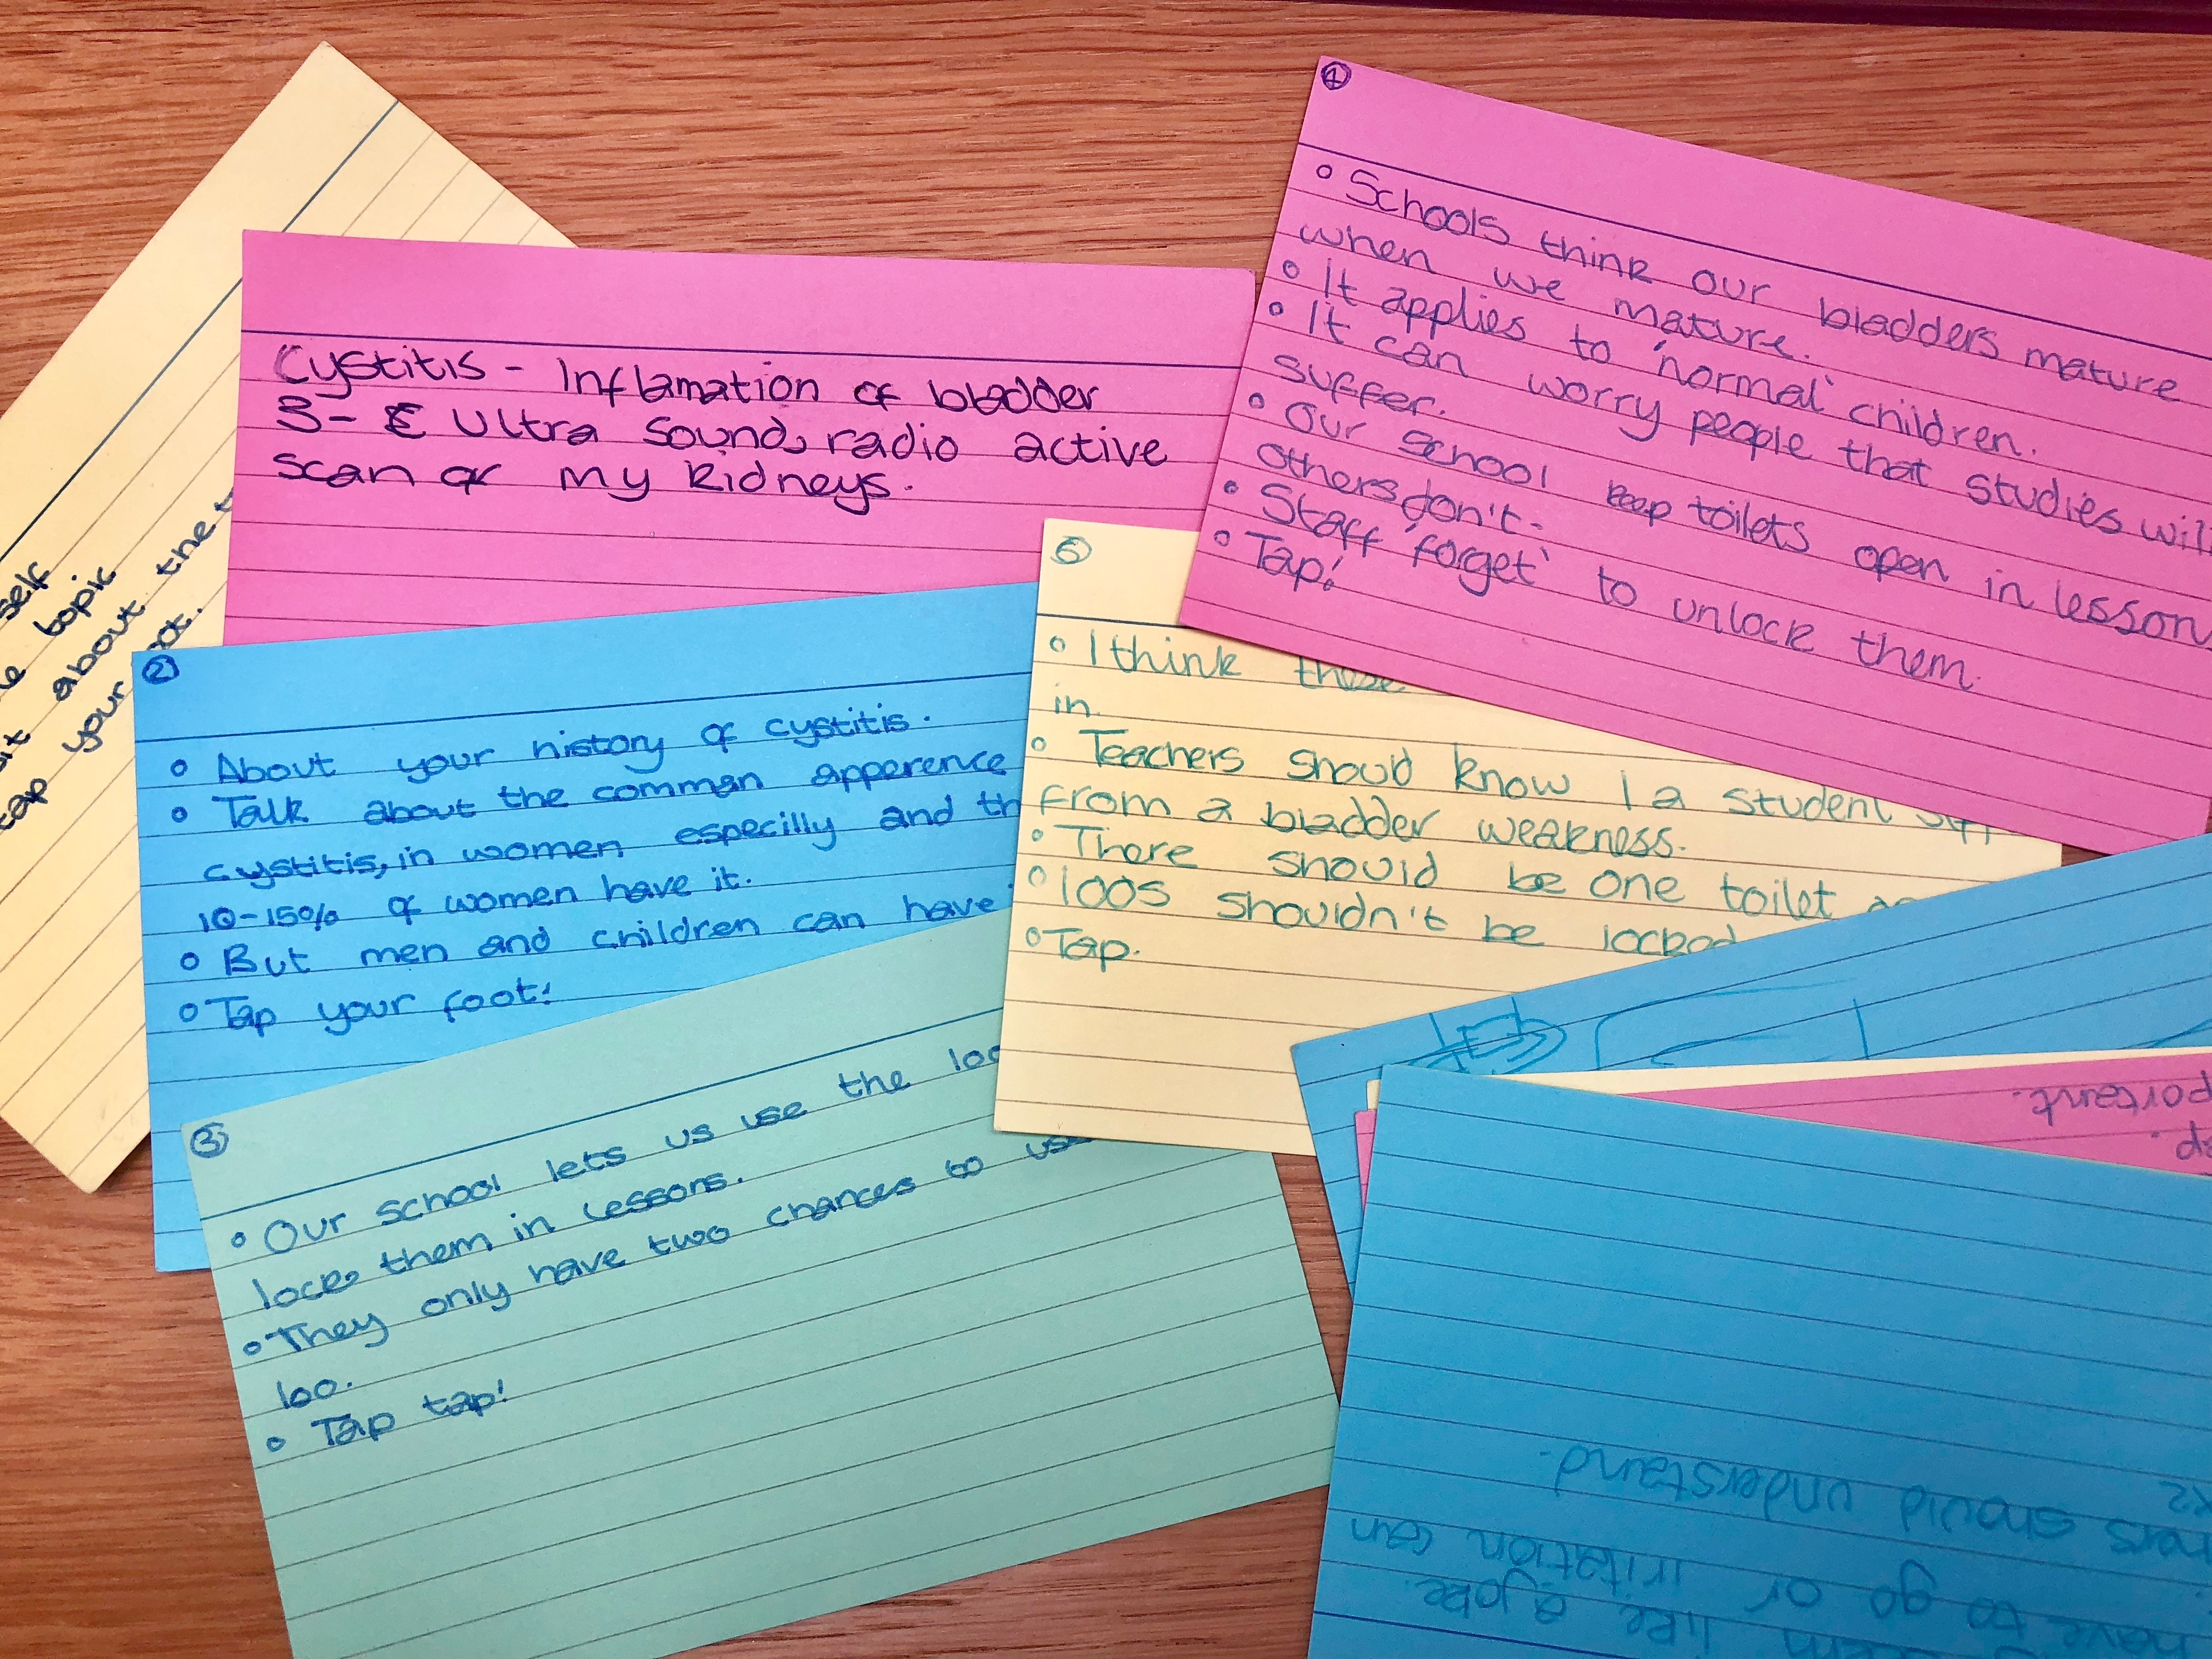 self
topic
about the
your
tap
Cystitis - Inflamation of bladder
Ultra Sound, radio active
scan of my kidneys.
②
• About your history of cystitis.
• Talk about the common apperence
cystitis, in women especilly and
10-15% of women have it.
• But men and children can have
• Tap your foot!
③
• Our school lets us use the
lock them in lessons.
• They only have two chances to use
loo.
• Tap tap!
④
• Schools think our bladders mature
when we mature.
• It applies to 'normal' children.
• It can worry people that studies will
suffer.
• Our school keep toilets open in lesson
others don't.
• Staff 'forget' to unlock them.
• Tap!
⑤
• I think these
in.
• Teachers should know I a student
from a bladder weakness.
• There should be one toilet
• loos shouldn't be locked
• Tap.
portant.
have to go or irritation can
like a joke.
should understand.